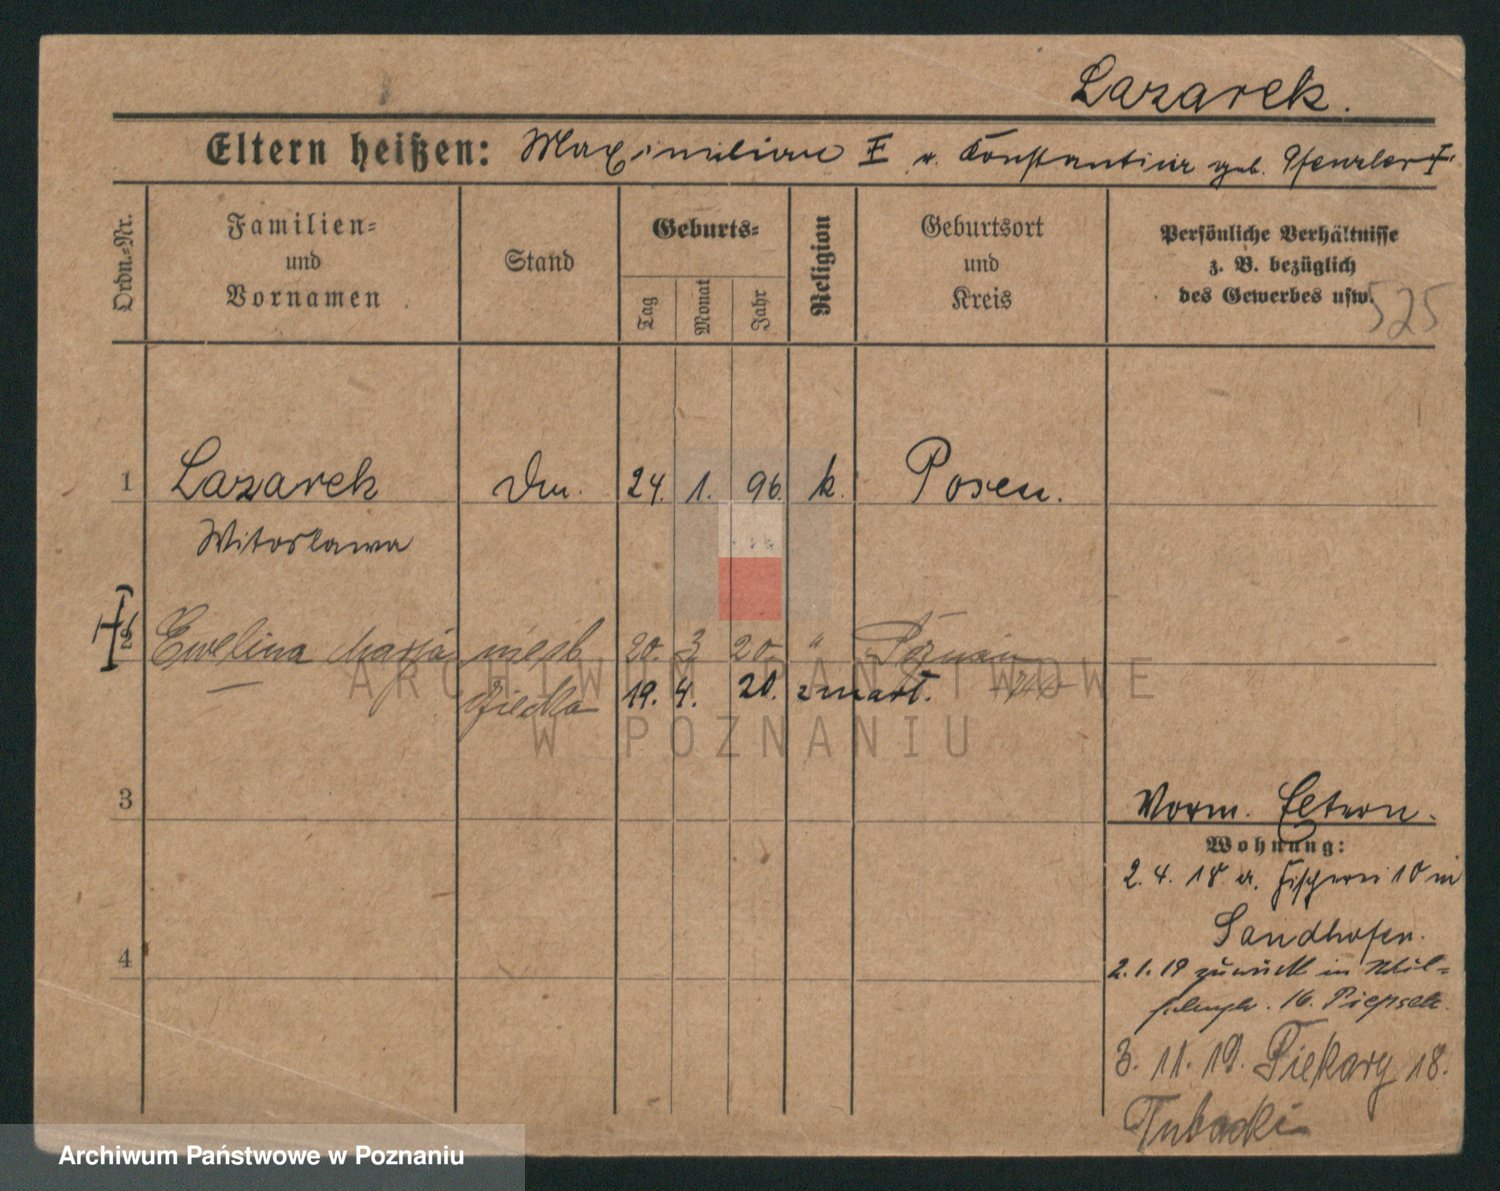 Lazarek.
Eltern heißen: Maximilian u. Konstantina geb.
Ordn.-Nr.
Familien=
und
Vornamen
Stand
Geburts=
Tag
Monat
Jahr
Religion
Geburtsort
und
Kreis
Persönliche Verhältnisse
z. B. bezüglich
des Gewerbes usw.
525
1 Lazarek 24. 1. 96. k. Posen.
Witoslawa
2 Ewelina Marja 20. 3 20. " Poznań
19. 4. 20. zmarł.
3
4
Vorm. Eltern.
Wohnung:
2. 4. 18 a. Fischerei 10 m
Sandhofen.
2. 1. 19 zurück in
16.
3. 11. 19. Piekary 18.
ARCHIWUM PAŃSTWOWE
W POZNANIU
Archiwum Państwowe w Poznaniu